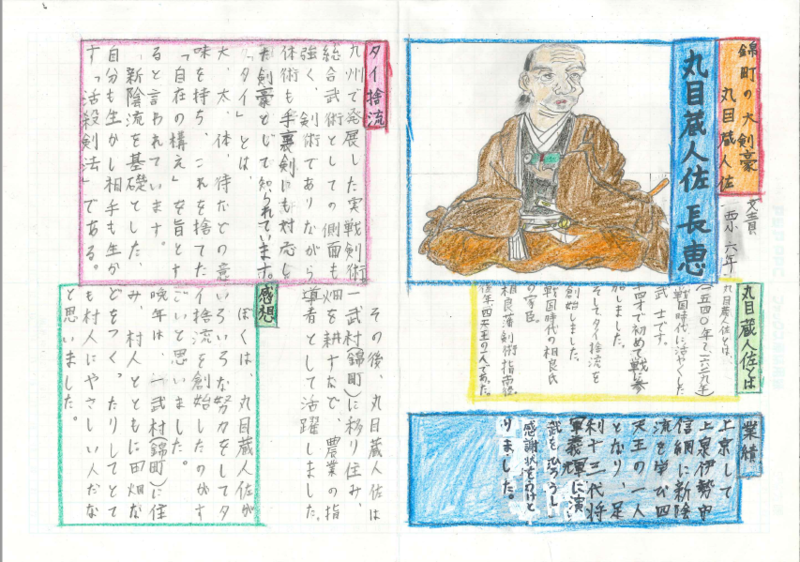 錦町の大剣豪
丸目蔵人佐
文責
六年
丸目蔵人佐 長恵
丸目蔵人佐とは
丸目蔵人佐とは、
(一五四〇年～一六二九年)
戦国時代に活やくした
武士です。
十四才で初めて戦に参
加しました。
そしてタイ捨流を
創始しました。
戦国時代の相良氏
の家臣。
相良藩剣術指南役。
後年、四天王の一人であった。
業績
上京して
上泉伊勢守
信綱に新陰
流を学び四
天王の一人
となり、足
利十三代将
軍義輝に演
武をひろうし
感謝状をうけと
りました。
タイ捨流
九州で発展した実戦剣術
総合武術としての側面も
強く、剣術でありながら
体術も手裏剣にも対応し
た剣豪として知られています。
「タイ」とは、
大、太、体、待などの意
味を持ち、これを捨てた
「自在の構え」を旨とす
ると言われています。
新陰流を基礎とした、
自分も生かし相手も生か
す「活殺剣法」である。
その後、丸目蔵人佐は
一武村(錦町)に移り住み、
畑を耕すなど、農業の指
導者として活躍しました。
感想
ぼくは、丸目蔵人佐が
いろいろな努力をしてタ
イ捨流を創始したのがす
ごいと思いました。
晩年は、一武村(錦町)に住
み、村人とともに田畑な
どをつくったりしてとて
も村人にやさしい人だな
と思いました。